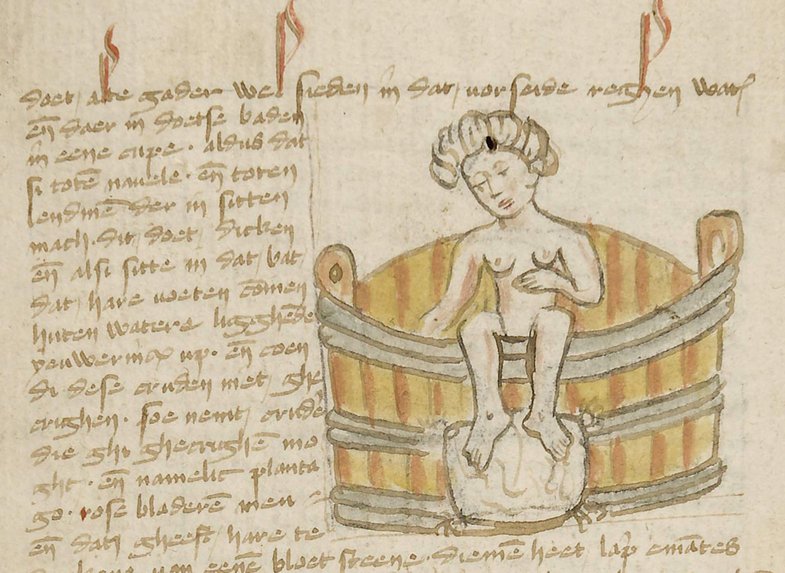 doet alle gader wel sieden in dat vorseide reghen wat
en̄ daer in doetse baden
in eene cupe · aldus dat
si totē navele · en̄ toten
lendinē der in sitten
mach · dit doet dicken
en̄ alsi sitte in dat bat
dat hare voeten cōmen
buten watere ligghēde
up · en̄ coen
di dese cruden niet ghe
crighen · soe nemt crudē
die ghi ghecrighē mo
ght · en̄ namelic planta
go · rose bladerē
en̄ dat gheeft hare te
van eenē bloet steene · diemē heet lap̄ ematēs